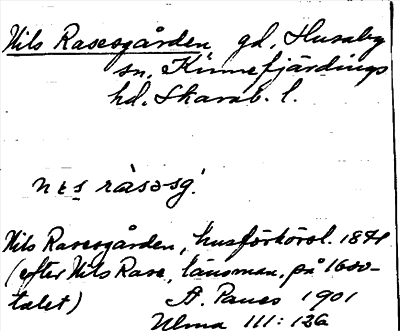 Nils Rasesgården, gd, Husaby
sn, Kinnefjärdings
hd. Skarab. l.
nɩs ràsəsg.
Nils Rasesgården, husförhörsl. 1874
(efter Nils Rase, länsman, på 1600-
talet) A. Panes 1901
Ulma 111: 136